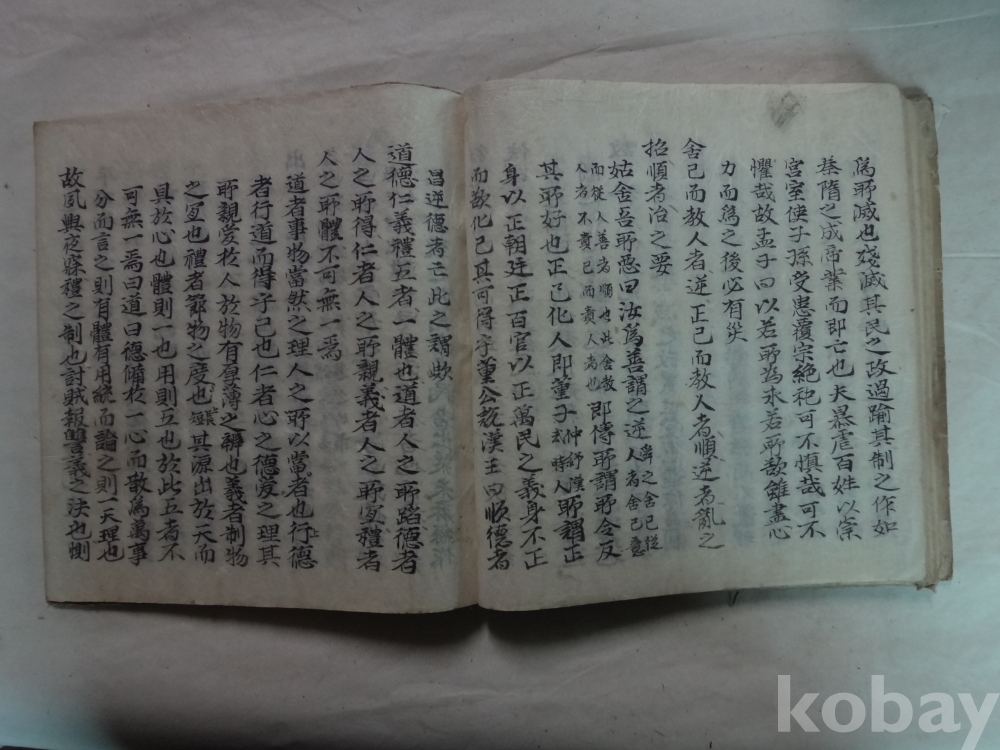 爲所滅也殘滅其民之政過踰其制之作如
秦隋之成帝業而即亡也夫暴虐百姓以崇
宮室使子孫受患覆宗絶祀可不愼哉可不
懼哉故孟子曰以若所爲求若所欲雖盡心
力而爲之後必有災
舍己而教人者逆正己而教人者順逆者亂之
招順者治之要
姑舍吾所惡曰汝爲善謂之逆 人者舍己
而從人善者順也此舍教
人者不責己而責人者也 即傳所謂所令反
其所好也正己化人即董子 仲舒漢
時人 所謂正
身以正朝廷正百官以正萬民之義身不正
而欲化己其可得乎董公說漢王曰順德者
昌逆德者亡此之謂歟
道德仁義禮五者一體也道者人之所蹈德者
人之所得仁者人之所親義者人之所宜禮者
人之所體不可無一焉
道者事物當然之理人之所以當者也行德
者行道而得乎己也仁者心之德愛之理其
所親愛於人於物有厚薄之辨也義者制物
之宜也禮者節物之度也 其源出於天而
具於心也體則一也用則五也於此五者不
可無一焉曰道曰德備於一心而散爲萬事
分而言之則有體有用統而論之則一天理也
故夙興夜寐禮之制也討賊報讐義之法也惻
kobay